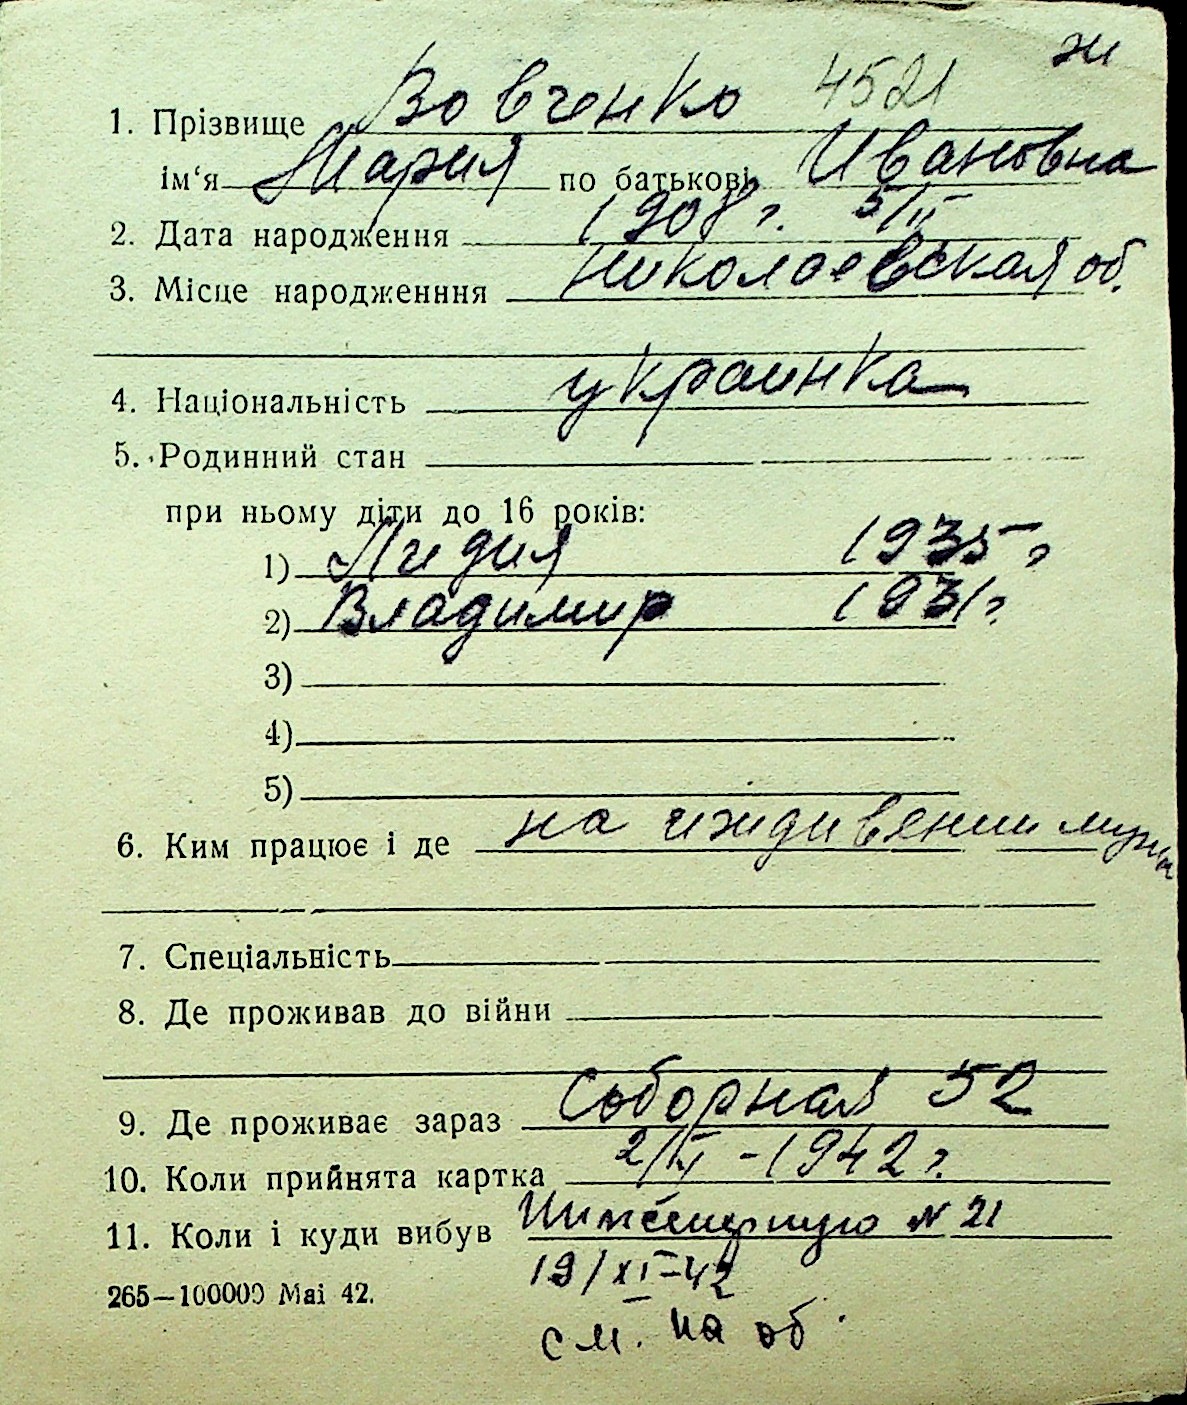 жи
1. Прізвище Вовченко 4521
ім‘я Мария по батькові Ивановна
2. Дата народження 1908 г. 5/II
3. Місце народженння Николаевская об.
4. Національність украинка
5. Родинний стан
при ньому діти до 16 років:
1) Лидия 1935 г
2) Владимир 1931 г
3)
4)
5)
6. Ким працює і де на иждивении мужа
7. Спеціальність
8. Де проживав до війни
9. Де проживає зараз Соборная 52
10. Коли прийнята картка 1942 г.
11. Коли і куди вибув Инженерную № 21
19/XI-42
265—100000 Mai 42.
см. на об.